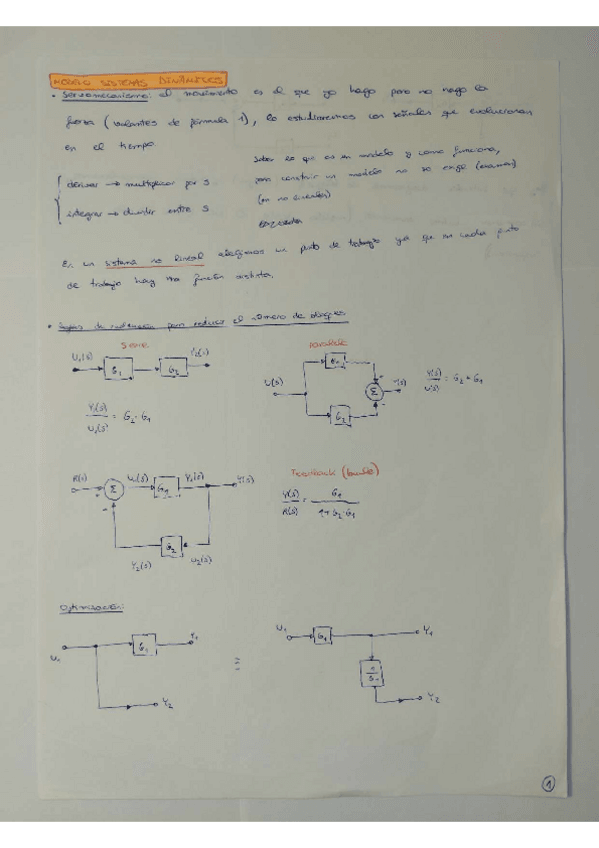 MODELO SISTEMAS DINÁMICOS
• Servomecanismo: el movimiento es el que yo hago pero no hago la
fuerza (volantes de fórmula 1), lo estudiaremos con señales que evolucionan
en el tiempo.
derivar → multiplicar por s
integrar → dividir entre s
Saber lo que es un modelo y como funciona,
pero construir un modelo no se exige (examen)
(en no lineales)
En un sistema no lineal elegimos un punto de trabajo ya que en cada punto
de trabajo hay una función distinta.
• Reglas de para reducir el número de bloques
Serie
U₁(s) G₁ G₂ Y₂(s)
Y₂(s)/U₁(s) = G₂·G₁
Paralelo
U(s) G₁ G₂ Σ + Y(s)
Y(s)/U(s) = G₂ + G₁
R(s) + Σ - U₁(s) G₁ Y₁(s) Y(s)
G₂ Y₂(s) U₂(s)
Feedback (bucle)
Y(s)/R(s) = G₁/1+G₂·G₁
Optimización:
U₁ G₁ Y₁
Y₂
≡
U₁ G₁ Y₁
1/G₁
Y₂
1